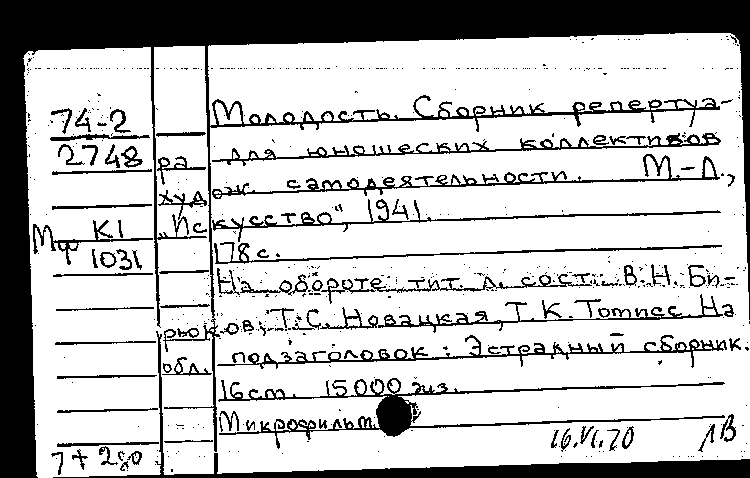 74-2
2748
Мф К1
1031
Молодость. Сборник репертуа-
ра для юношеских коллективов
худож. самодеятельности. М.-Л.,
„Искусство", 1941.
178 с.
На обороте тит. л. сост.: В.Н. Би-
рюков, Т.С. Новацкая, Т.К. Томисс. На
обл. подзаголовок: Эстрадный сборник.
16 ст. 15000 экз.
Микрофильм.
16.VI.70 1В